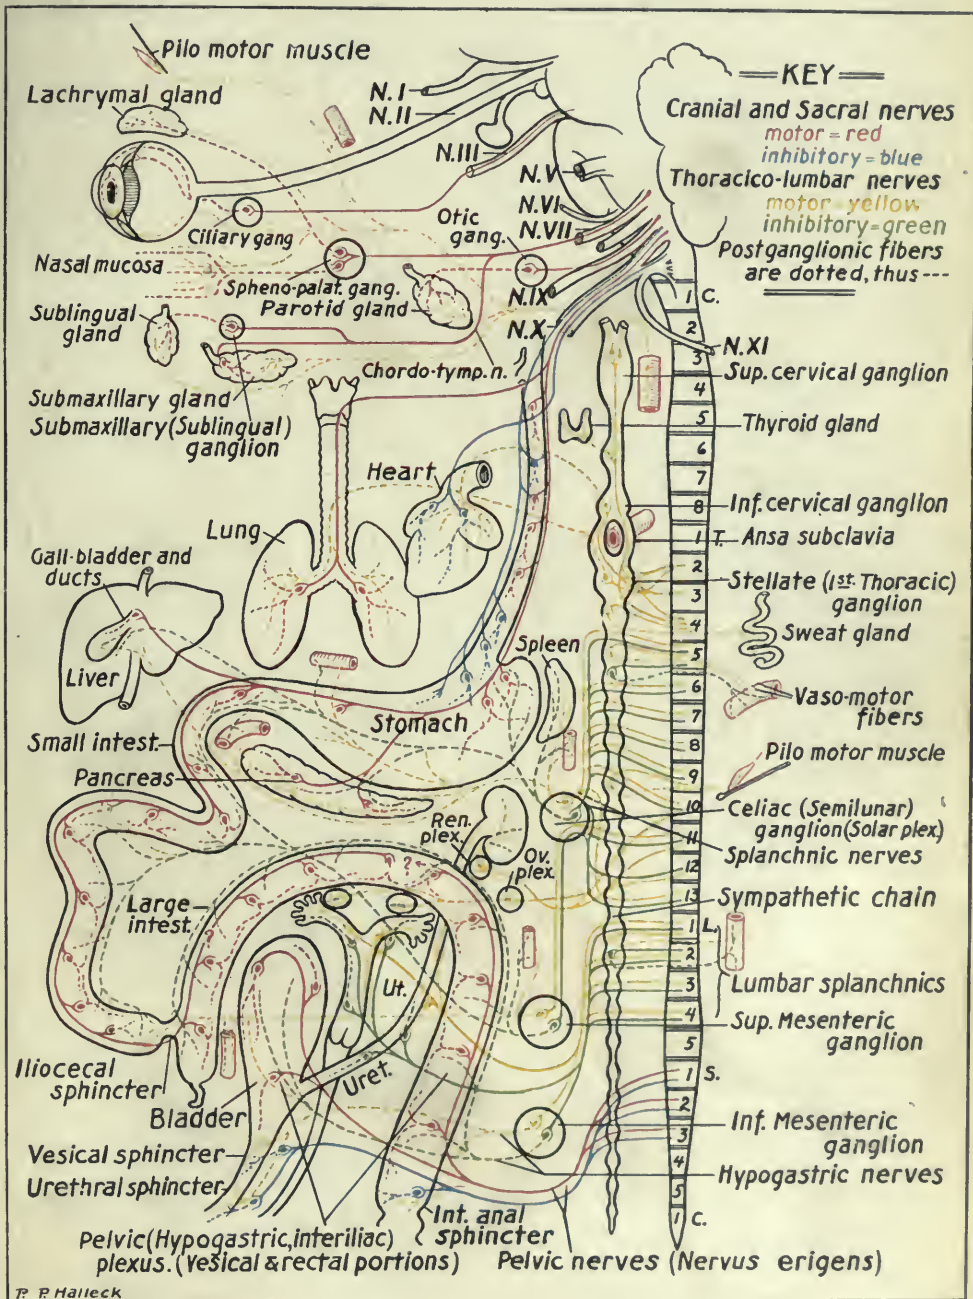 Pilo motor muscle
Lachrymal gland
N.I
N.II
N.III
N.V
N.VI
N.VII
Otic
gang.
Ciliary gang
Nasal mucosa
Spheno-palat. gang.
Parotid gland
N.IX
N.X
Sublingual
gland
Chordo-tymp. n.
Submaxillary gland
Submaxillary (Sublingual)
ganglion
Heart
Lung
Gall-bladder and
ducts
Liver
Spleen
Stomach
Small intest.
Pancreas
Ren.
plex.
Ov.
plex.
Large
intest.
?
?
Ut.
Uret.
Iliocecal
sphincter
Bladder
Vesical sphincter
Urethral sphincter
Int. anal
sphincter
Pelvic (Hypogastric, interiliac)
plexus. (Vesical & rectal portions)
Pelvic nerves (Nervus erigens)
KEY
Cranial and Sacral nerves
motor = red
inhibitory = blue
Thoracico-lumbar nerves
motor yellow
inhibitory = green
Postganglionic fibers
are dotted, thus ---
1 C.
2
3
4
5
6
7
8
1 T.
2
3
4
5
6
7
8
9
10
11
12
13
1 L.
2
3
4
5
1 S.
2
3
4
5
1 C.
N.XI
Sup. cervical ganglion
Thyroid gland
Inf. cervical ganglion
Ansa subclavia
Stellate (1st. Thoracic)
ganglion
Sweat gland
Vaso-motor
fibers
Pilo motor muscle
Celiac (Semilunar)
ganglion (Solar plex.)
Splanchnic nerves
Sympathetic chain
Lumbar splanchnics
Sup. Mesenteric
ganglion
Inf. Mesenteric
ganglion
Hypogastric nerves
P. P. Halleck